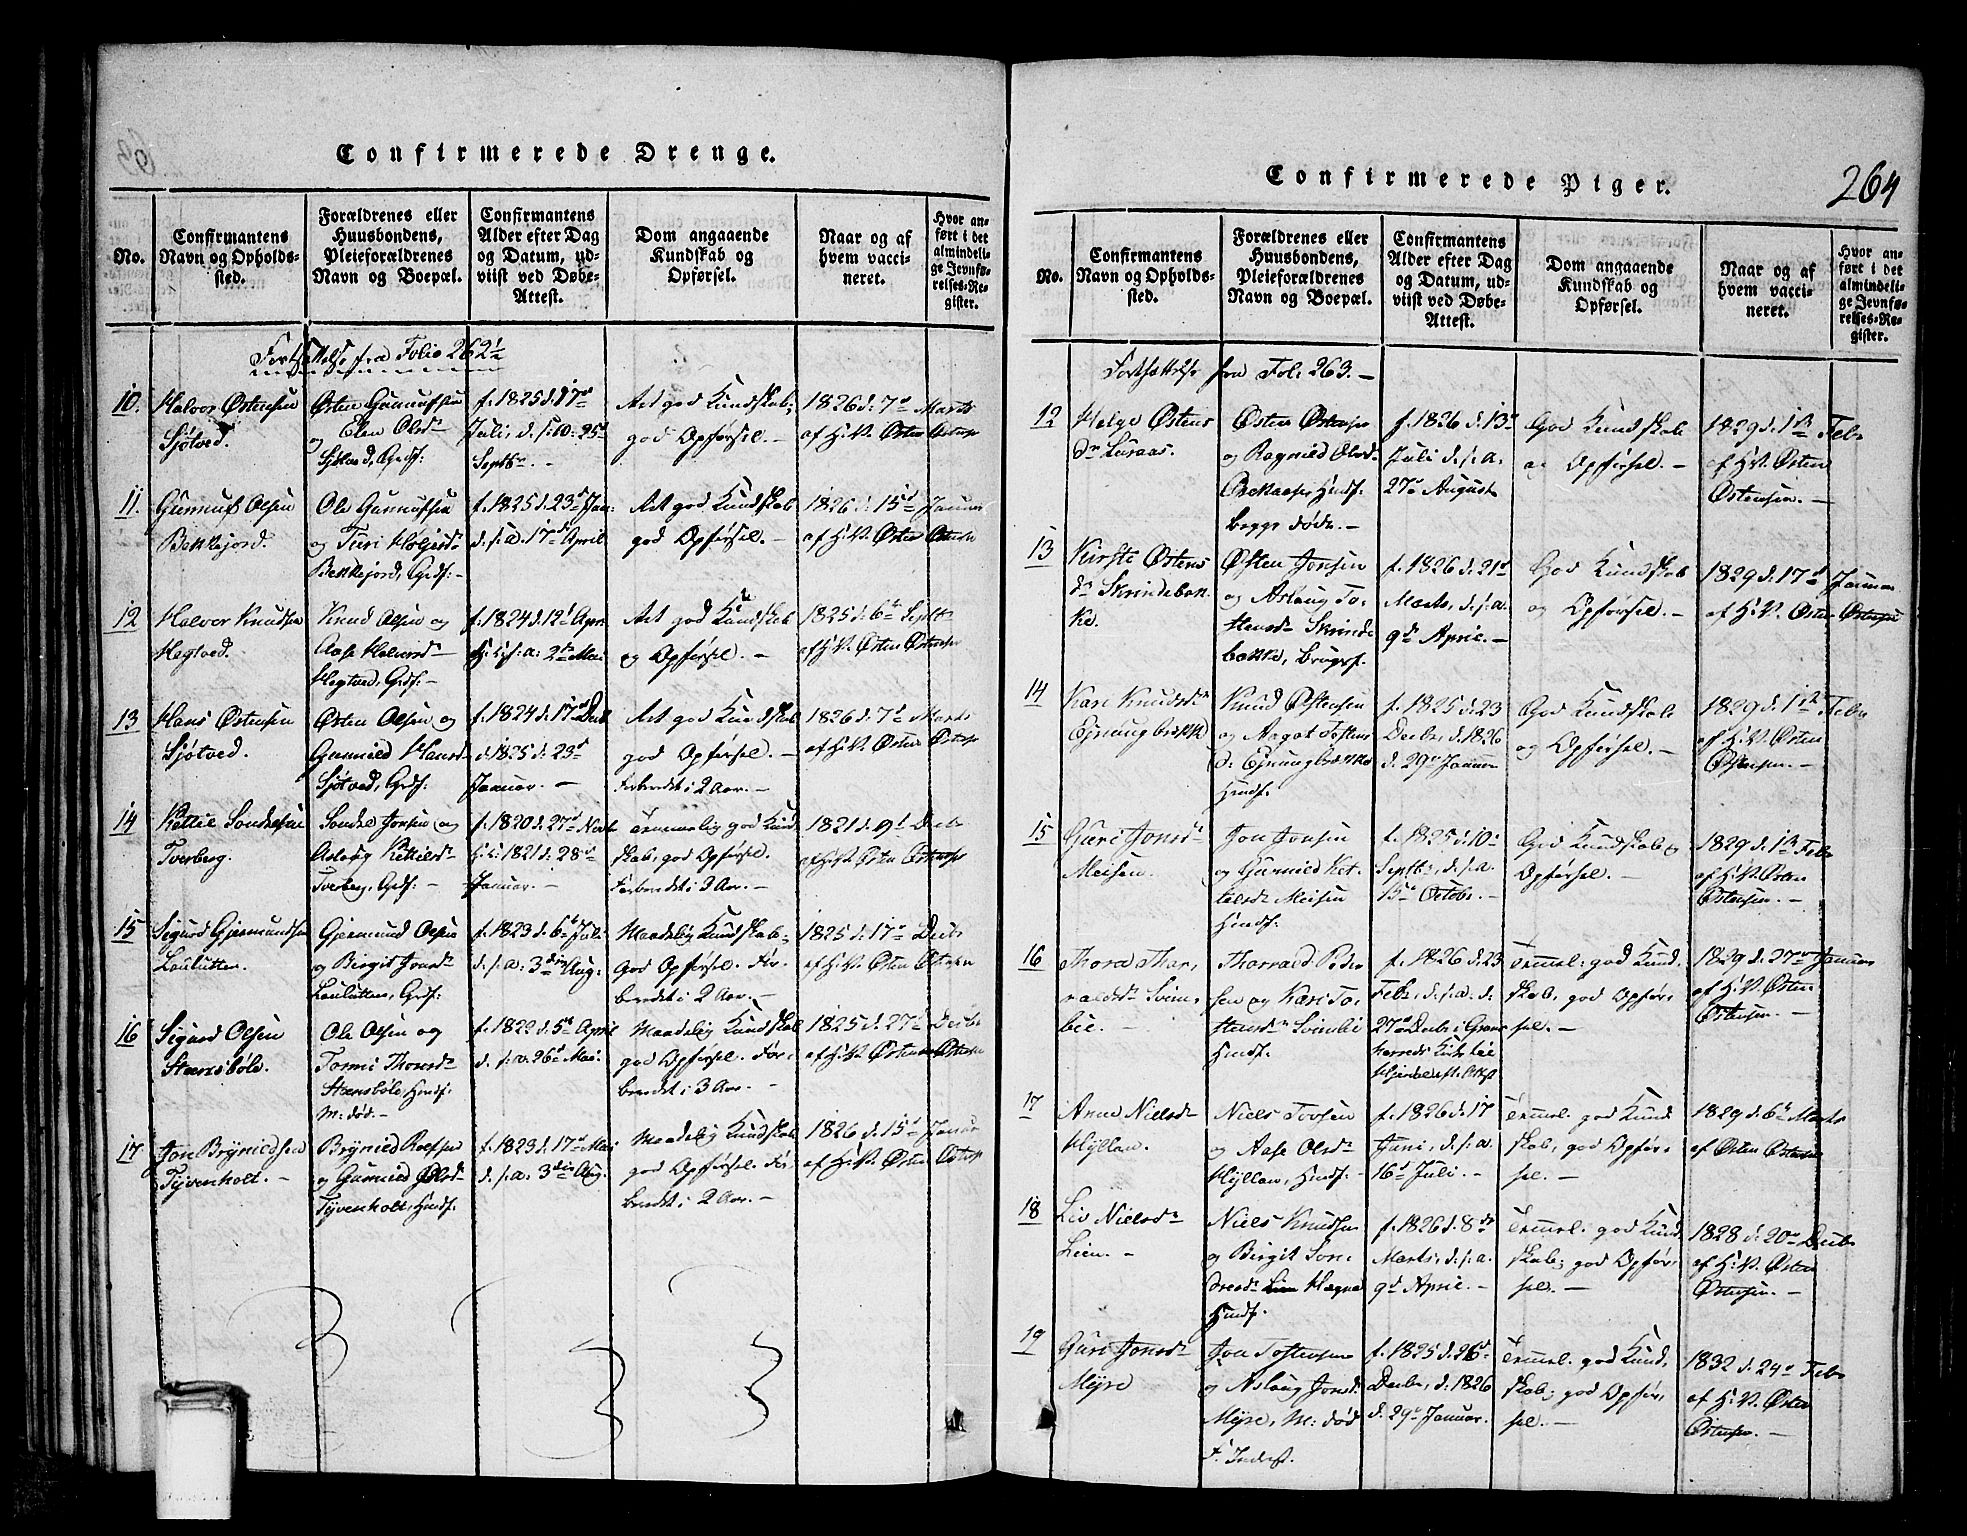 Confirmerede Drenge.
No.
Confirmantens
Navn og Opholds-
sted.
Forældrenes eller
Huusbondens,
Pleieforældrenes
Navn og Boepæl.
Confirmantens
Alder efter Dag
og Datum, ud-
viist ved Døbe-
Attest.
Dom angaaende
Kundskab og
Opførsel.
Naar og af
hvem vacci-
neret.
Hvor an-
ført i det
almindeli-
ge Jevnfø-
relses-Re-
gister.
Fortsættelse fra Folio 262½
10.
Halvor Østensen
Sjøtved.
Østen Gunnufsen
og Elen Olsdr
Sjøtved, Grdf:
f. 1825 d. 17d
Juli, d. s: a: 25d
Septbr. –
Ret god Kundskab,
god Opførsel. –
1826 d: 7d Marts
af H.V. Østen Østensen
11.
Gunnuf Olsen
Bekkejord.
Ole Gunnufsen
og Turi Holjesdr
Bekkejord, Grdf: –
f. 1825 d. 23d Jan:
d. s. a. 17de April
Ret god Kundskab
god Opførsel. –
1826 d: 15d Januar
af H.V. Østen Østensen
12
Halvor Knudsen
Hegtved.
Knud Olsen og
Aase Halvorsdr
Hegtved, Grdf: –
f. 1824 d. 12t Apr:
s: a: 2d Mai
Ret god Kundskab
og Opførsel. –
1825 d: 6te Septbr
af H.V. Østen Østensen
13
Hans Østensen
Sjøtved
Østen Olsen og
Gunnild Hansdr
Sjøtved, Grdf:
f. 1824 d. 17d Decbr
d. 1825 d. 23d
Januar. –
Ret god Kundskab
god Opførsel. –
Forberedt i 2 Aar. –
1826 d: 7d Marts
af H.V. Østen Østensen
14
Kittil Sondresen
Tverberg.
Sondre Jonsen og
Aslaug Kittilsdr
Tverberg, Grdf: –
f. 1820 d. 27d Novbr
1821 d. 28de
Januar. –
Temmelig god Kund
skab, god Opførsel.
Forberedt i 3 Aar. –
1821 d. 9d Decbr
af H.V. Østen Østensen
15
Sigurd Gjermundsen
Loulutten.
Gjermund Olsen
og Birgit Jonsdr
Loulutten, Grdf:
f. 1823 d. 6te Juli
d. s. a. 3die Aug:
Maadelig Kundskab,
God Opførsel. For
beredt i 2 Aar. –
1825 d. 17d Decbr
af H.V. Østen Østensen
16
Sigurd Olsen
Steensbøle.
Ole Olsen og
Tormi Thorsdr
Steensbøle, Huusf.
M: død. –
f. 1822 d. 5te April
d. s. a. 26d Mai.
Maadelig Kundskab
god Opførsel. For:
beredt i 3 Aar. –
1825 d. 27d Decbr
af H.V. Østen Østensen
17
Jon Brynildsen
Tyvenholt. –
Brynild Rolfsen
og Gunnild Olsdr
Tyvenholt, Huusf.
f. 1823 d. 17d Mai
d. s. a. 3die Aug.
Maadelig Kundskab
god Opførsel. For
beredt i 2 Aar. –
1826 d. 15d Januar
af H.V. Østen Østensen
Confirmerede Piger.
264
No.
Confirmantens
Navn og Opholds-
sted.
Forældrenes eller
Huusbondens,
Pleieforældrenes
Navn og Boepæl.
Confirmantens
Alder efter Dag
og Datum, ud-
viist ved Døbe-
Attest.
Dom angaaende
Kundskab og
Opførsel.
Naar og af
hvem vacci-
neret.
Hvor an-
ført i det
almindeli-
ge Jevnfø-
relses-Re-
gister.
Fortsættelse fra Fol: 263. –
12
Helge Østens
dr Luraas.
Østen Østensen
og Ragnild Olsdr
Huusf.
begge døde. –
f. 1826 d. 13d
Juli d. s. a.
27d August
God Kundskab
og Opførsel. –
1829 d. 1ste Febr
af H.V. Østen
Østensen. –
13
Kirste Østens
dr Skrindebak
ke.
Østen Jonsen
og Aslaug To
stensdr Skrinde
bakke, Brugsf.
f. 1826 d. 21d
Marts, d. s. a.
9d April. –
God Kundskab
og Opførsel. –
1829 d. 17d Januar
af H.V. Østen Østensen
14
Kari Knudsdr
Ejnungbrekke
Knud Østensen
og Aagot Tostens
dr Ejnungbrække
Huusf.
f. 1825 d. 23
Decbr, d. 1826
d. 29d Januar
God Kundskab
og Opførsel. –
1829 d. 1ste Febr
af H.V. Østen
Østensen. –
15
Guri Jonsdr
Meisen.
Jon Jonsen
og Gunnild Ket
telsdr Meisen
Huusf:
f. 1825 d. 10
Septbr, d. s. a.
15d Octobr. –
God Kundskab og
Opførsel. –
1829 d. 1ste Febr
af H.V. Østen
Østensen. –
16
Thora Thor,
valdsdr Svin,
lie. –
Thorvald Peder
sen og Kari To
stensdr Svinlie
Huusf.
f. 1826 d. 23
Febr, d. s. a. d.
27d Decbr i
Temel: god Kund
skab, god Opfør,
sel. –
1829 d. 27d Januar
af H.V. Østen
Østensen. –
17
Anne Nielsdr
Hylland.
Niels Tovsen
og Aase Olsdr
Hylland, Huusf: –
f. 1826 d. 17
Juni, d. s. a.
16d Juli. –
Temel. god Kund
skab, god Opfør,
sel. –
1829 d. 6te Marts
af Østen Østensen
18
Liv Nielsdr
Lien. –
Niels Knudsen
og Birgit Son,
dresdr
Huusf.
f. 1826 d. 8de
Marts, d. s. a.
9d April. –
Temel. god Kund
skab, god Opfør,
sel. –
1828 d. 20d Decbr
af H.V. Østen
Østensen. –
19
Guri Jonsdr
Myre
Jon Tostensen
og Aslaug Jonsdr
Myre, M: død
f. 1825 d. 26d
Decbr, d. 1826
d. 29d Januar.
Temel. god Kund,
skab, god Opfør,
sel. –
1832 d. 24d Febr
af H.V. Østen
Østensen. –